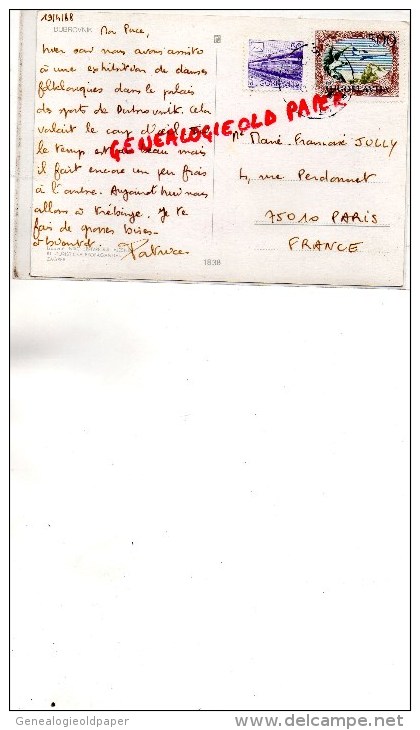 19/4/88
DUBROVNIK
Ma Puce,
hier soir nous avons assisté
à une exhibition de danses
folkloriques dans le palais
des sports de Dubrovnik. Cela
valait le coup d'
le temps est beau mais
il fait encore un peu frais
à l'ombre. Aujourd'hui nous
allons à Trébinje. Je te
fais de grosses bises.
à bientôt. Patrice
1838
GENEALOGIEOLD PAPER
Marie-Françoise JOLLY
4, rue Perdonnet
75010 PARIS
FRANCE
Genealogieoldpaper
www.delcampe.net